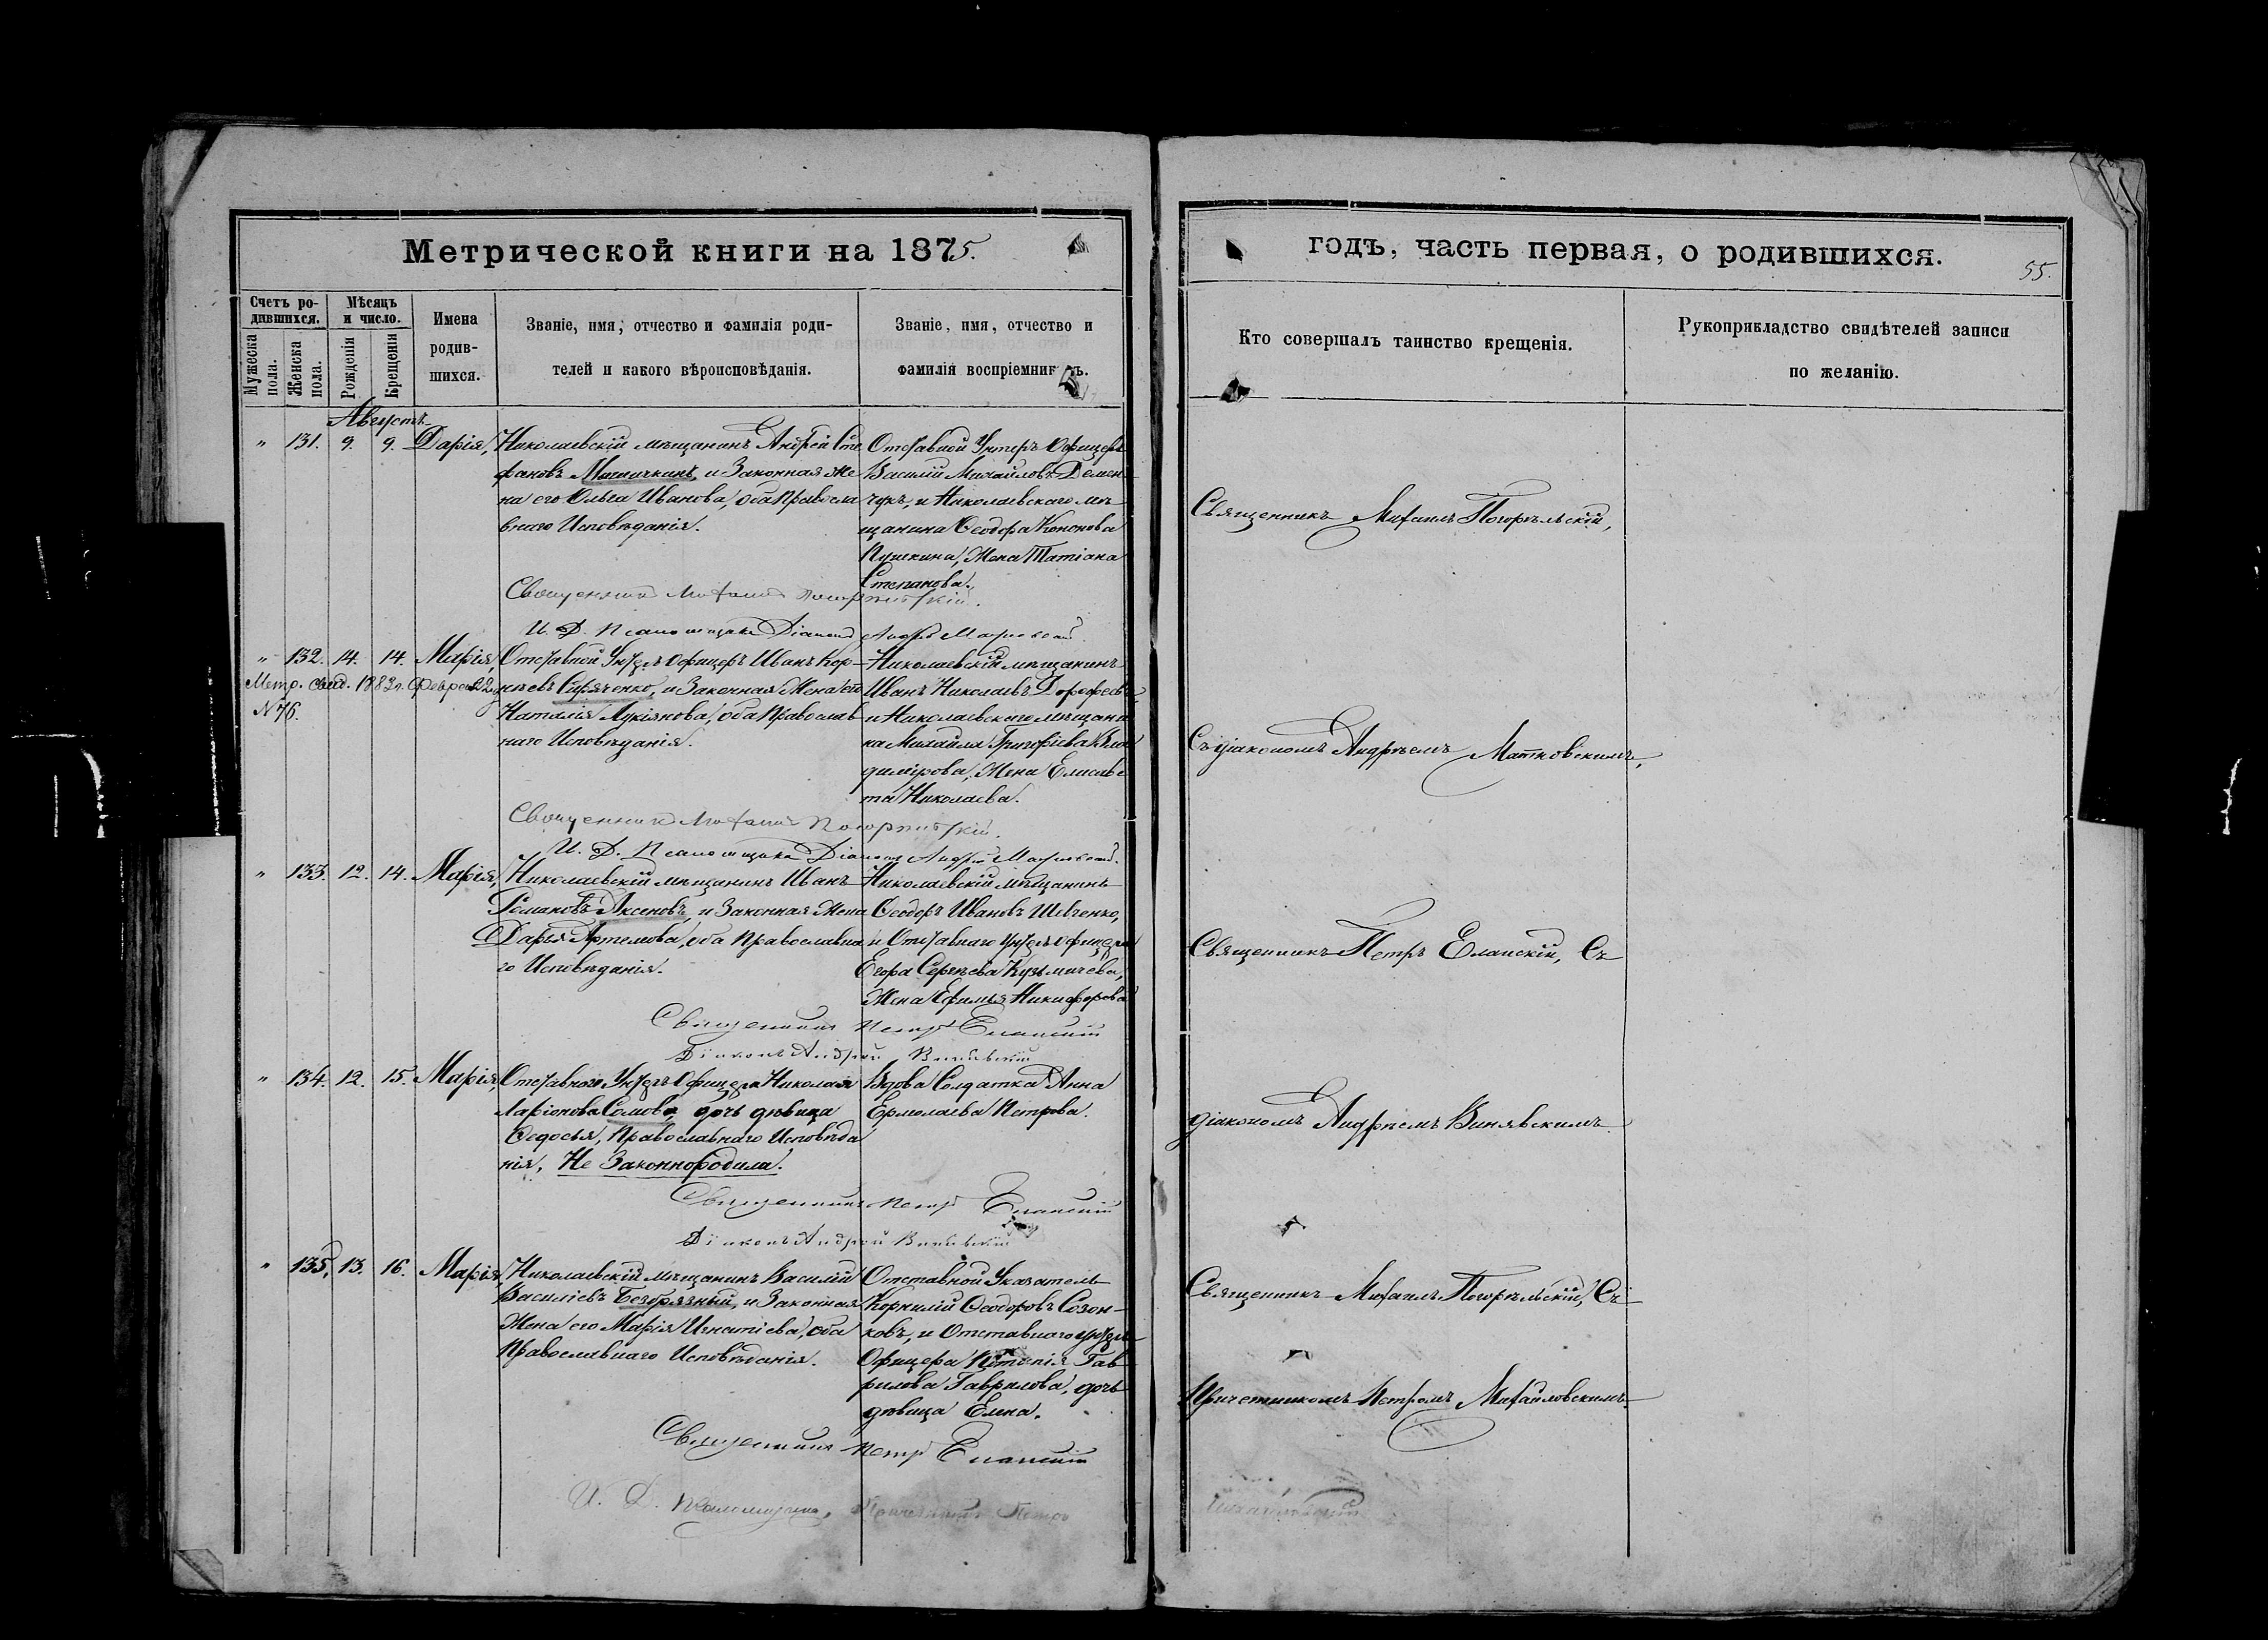 Метрической книги на 1875.
годъ, часть первая, о родившихся.
55.
Счетъ родившихся.
Мужеска пола.
Женска пола.
Мѣсяцъ и число.
Рожденія
Крещенія
Имена родившихся.
Званіе, имя, отчество и фамилія родителей и какого вѣроисповѣданія.
Званіе, имя, отчество и фамилія воспріемниковъ.
Кто совершалъ таинство крещенія.
Рукоприкладство свидѣтелей записи по желанію.
Августъ
" 131. 9. 9. Дарія,
Николаевскій мѣщанинъ Андрей Сте
фановъ и Законная Же
на его Ольга Иванова, оба Правосла
внаго Исповѣданія.
Отставной Унтеръ Офицеръ
Василій Михайловъ Демен
чукъ, и Николаевскаго мѣ
щанина Ѳеодора Кононова
Пушкина, Жена Татіана
Степанова.
Священникъ Михаилъ Погорѣльскій,
Священникъ Михаилъ Погорѣльскій.
И. Д. Псаломщика Діаконъ Андрей Матковскій.
" 132. 14. 14. Марія,
Метр. свид. 1883 г. Февраля 22
№ 76.
Отставной Унтеръ Офицеръ Иванъ Кор-
нѣевъ и Законная Жена его
Наталія Лукіянова, оба Православ
наго Исповѣданія.
Николаевскій мѣщанинъ
Иванъ Николаевъ Дорофеевъ
и Николаевскаго мѣщани
на Михаила Григоріева Вла
димірова, Жена Елисаве
та Николаева.
Съ діакономъ Андреемъ Матковскимъ,
Священникъ Михаилъ Погорѣльскій.
И. Д. Псаломщика Діаконъ Андрей Матковскій.
" 133. 12. 14. Марія,
Николаевскій мѣщанинъ Иванъ
Романовъ Аксеновъ, и Законная Жена
Дарья Артемова, оба Православна
го Исповѣданія.
Николаевскій мѣщанинъ
Ѳеодоръ Ивановъ Шевченко,
и Отставнаго Унтеръ офицера
Егора Сергѣева Кузьмичева,
Жена Ефимья Никифорова
Священникъ Петръ Еланскій, Съ
Священникъ Петръ Еланскій
Діаконъ Андрей Винявскій
" 134. 12. 15. Марія,
Отставнаго Унтеръ Офицера Николая
Ларіонова Сомова дочь дѣвица
Ѳедосья, Православнаго Исповѣда
нія, Не Законнородила.
Вдова Солдатка Анна
Ермолаева Петрова.
діакономъ Андреемъ Винявскимъ
Священникъ Петръ Еланскій
Діаконъ Андрей Винявскій
" 135. 13. 16. Марія
Николаевскій мѣщанинъ Василій
Василіевъ и Законная
Жена его Марія Игнатіева, оба
Православнаго Исповѣданія.
Отставной Указатель
Корнилій Ѳеодоровъ Созон-
ковъ, и Отставнаго Унтеръ
Офицера Гав
рилова Гаврилова, дочь
дѣвица Елена.
Священникъ Михаилъ Погорѣльскій, Съ
Причетникомъ Петромъ Михайловскимъ
Священникъ Петръ Еланскій
И. Д. Псаломщика, Причетникъ Петръ
Михайловскій